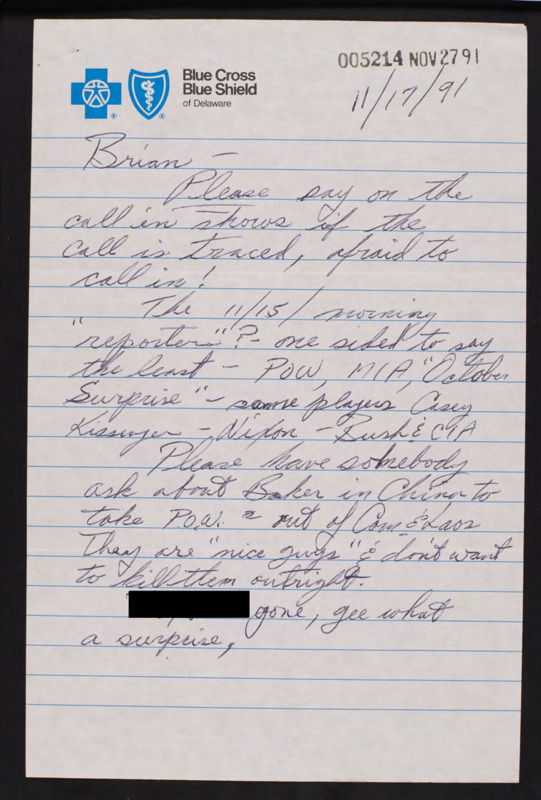 Blue Cross
Blue Shield
of Delaware
005214 NOV 27 91
11/17/91
Brian —
Please say on the
call in shows if the
call is traced, afraid to
call in!
The 11/15/ morning
"reporters"? - one sided to say
the least - POW, MIA, "October
Surprise" - same players Casey
Kissinger - Nixon - Bush & CIA
Please have somebody
ask about Baker in China to
take P.O.W. s out of Cam & Laos
They are "nice guys" & don't want
to kill them outright.
gone, gee what
a surprise,